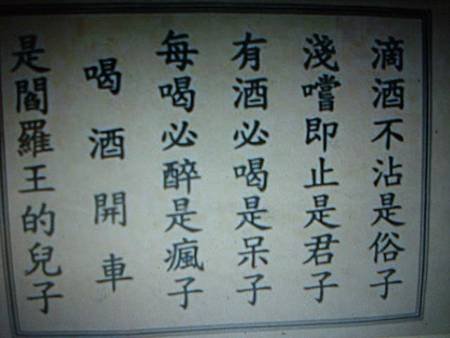 滴酒不沾是俗子
淺嚐即止是君子
有酒必喝是呆子
每喝必醉是瘋子
喝酒開車
是閻羅王的兒子